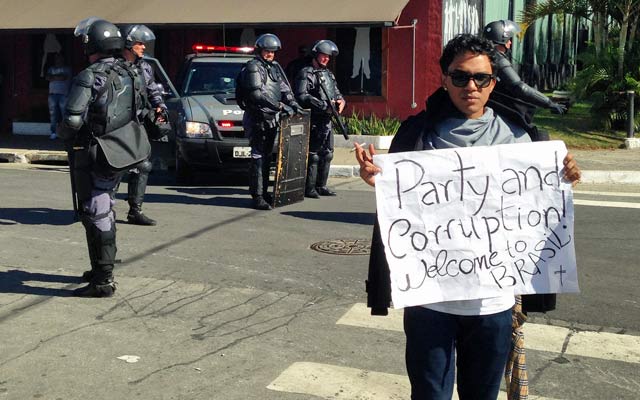 Party and
Corruption!
Welcome to
BRASIL +